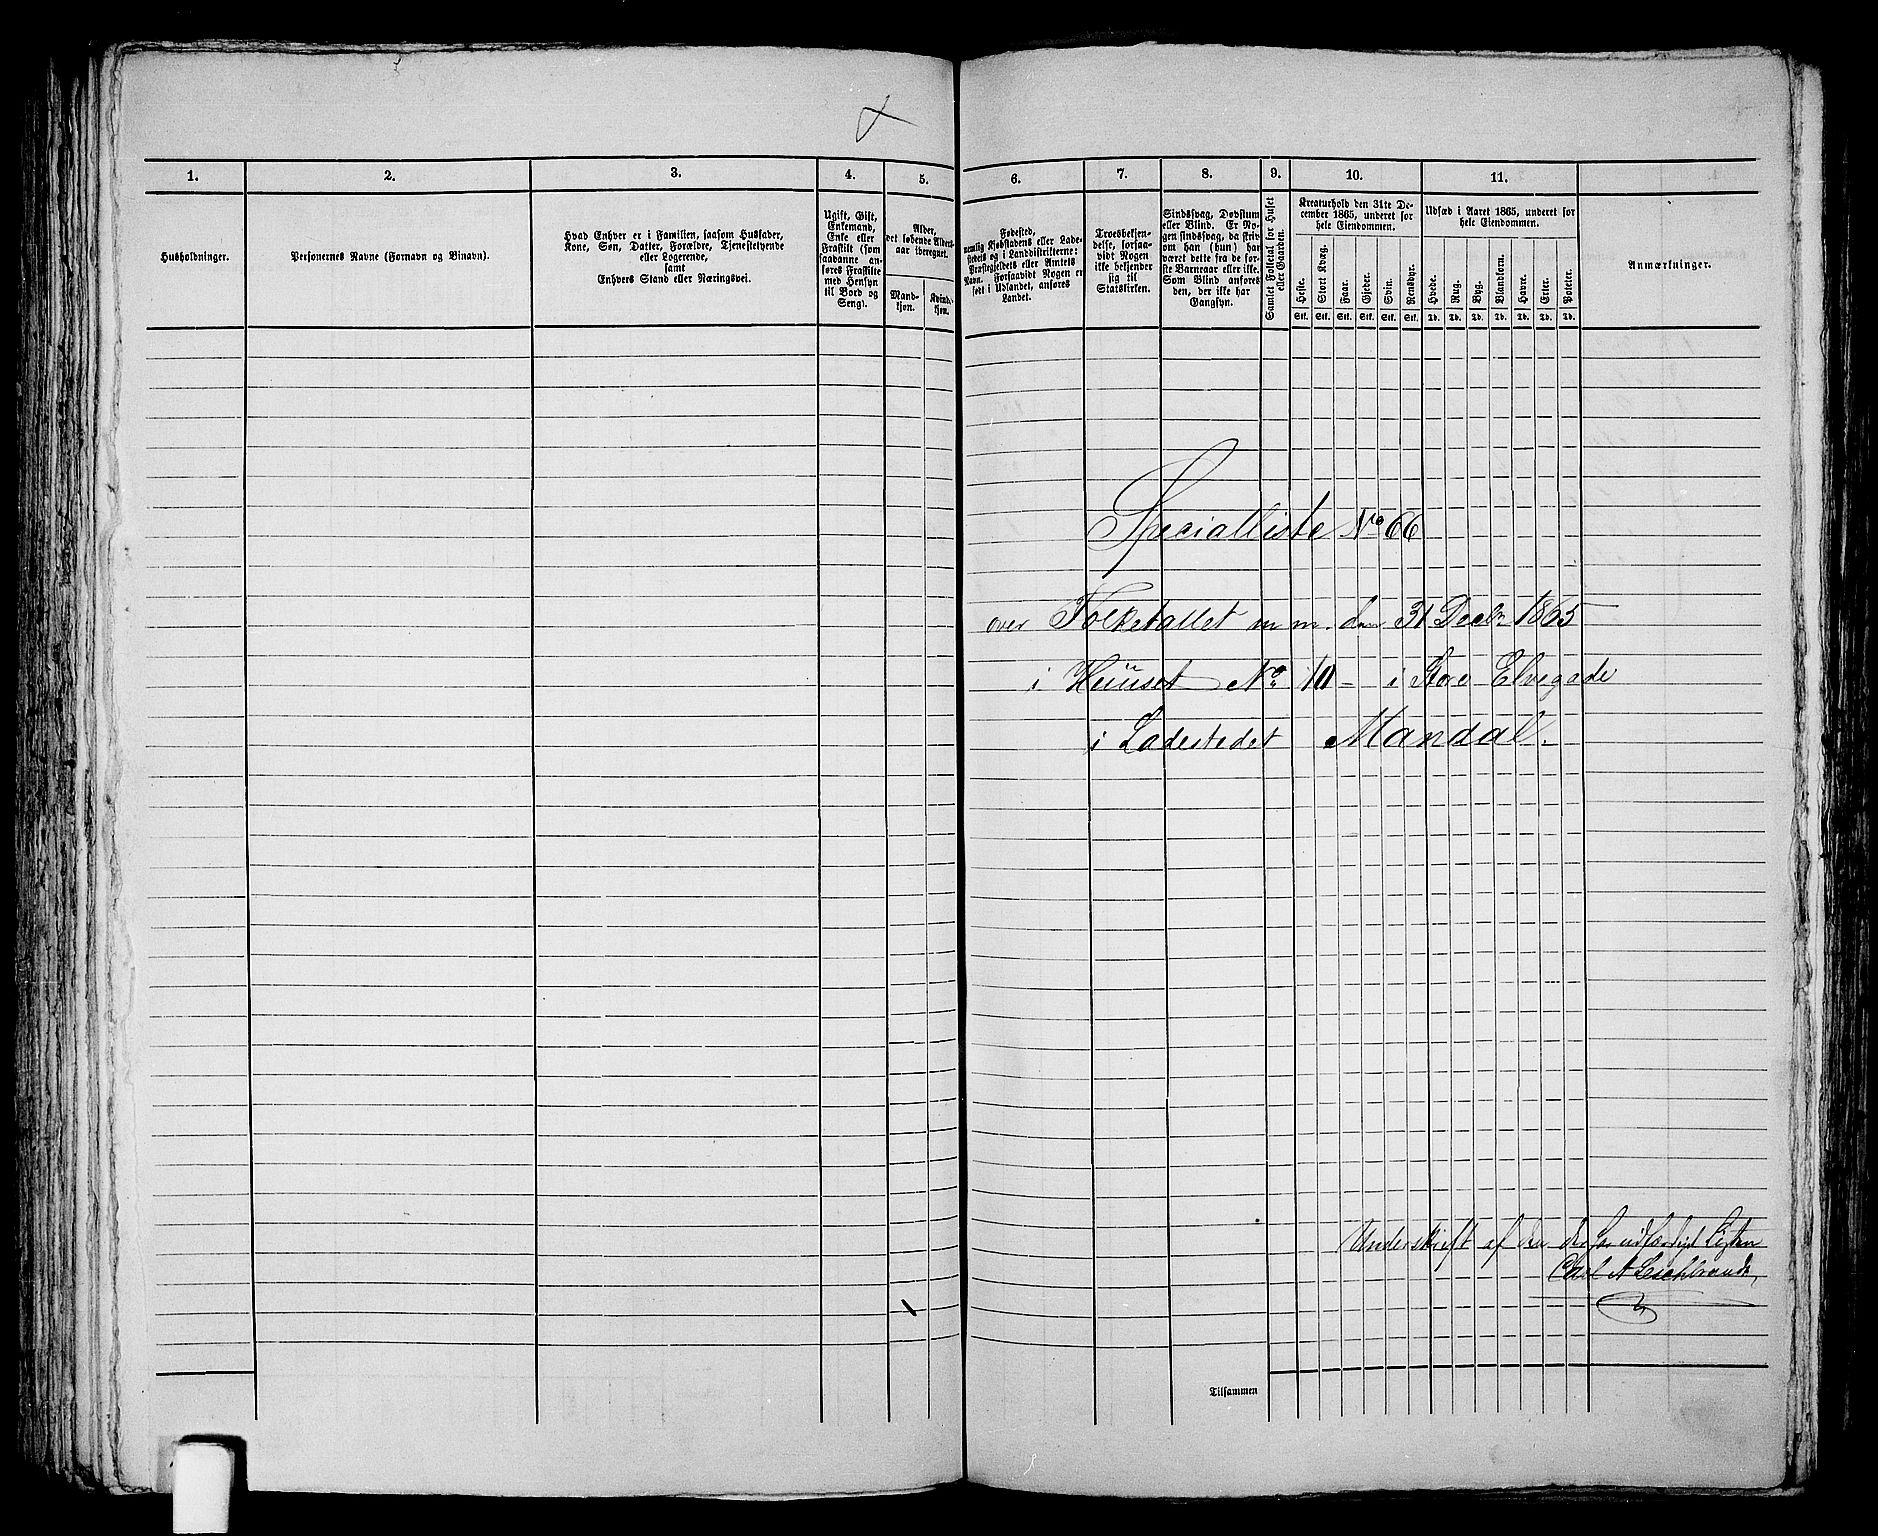 1. 2. 3. 4. 5. 6. 7. 8. 9. 10. 11.
Husholdninger.
Personernes Navne (Fornavn og Binavn).
Hvad Enhver er i Familien, saasom Husfader,
Kone, Søn, Datter, Forældre, Tjenestetyende
eller Logerende,
samt
Enhvers Stand eller Næringsvei.
Ugift, Gift,
Enkemand,
Enke eller
Fraskilt (som
saadanne an-
føres Fraskilte
med Hensyn
til Bord og
Seng).
Alder,
det løbende Alders-
aar iberegnet.
Mand-
kjøn.
Kvinde-
kjøn.
Fødested,
nemlig Kjøbstadens eller Lade-
stedets og i Landdistrikterne:
Præstegjeldets eller Amtets
Navn. Forsaavidt Nogen er
født i Udlandet, anføres
Landet.
Troesbekjen-
delse, forsaa-
vidt Nogen
ikke bekjender
sig til
Statskirken.
Sindssvag, Døvstum
eller Blind. Er No-
gen sindssvag, da skriv
om han (hun) har
været dette fra de før-
ste Barneaar eller ikke.
Som Blind anføres
den, der ikke har
Gangsyn.
Samlet Folketal for Huset
eller Gaarden.
Kreaturhold den 31te De-
cember 1865, underet for
hele Eiendommen.
Heste. Stort Kvæg. Faar. Gjeder. Svin. Rensdyr.
Stk. Stk. Stk. Stk. Stk. Stk.
Udsæd i Aaret 1865, underet for
hele Eiendommen.
Hvede. Rug. Byg. Blandkorn. Havre. Erter. Poteter.
Td. Td. Td. Td. Td. Td. Td.
Anmærkninger.
Specialliste No 66
over Folketallet m m. den 31 Decbr 1865
i Huuset No 10 - i Store Elvegade
i Ladestedet Mandal.
Underskrift af den der har udfærdiget Listen
Carl A
Tilsammen